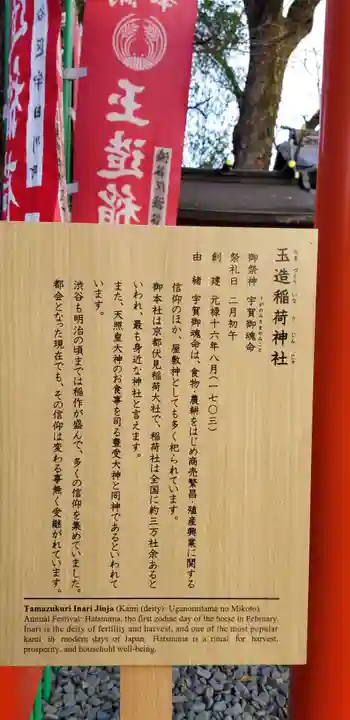 玉造稲荷神社
たまづくりいなりじんじゃ
御祭神 宇賀御魂命
うがのみたまのみこと
祭礼日 二月初午
創建 元禄十六年八月(一七〇三)
由緒 宇賀御魂命は、食物・農耕をはじめ商売繁昌・殖産興業に関する
信仰のほか、屋敷神としても多く祀られています。
御本社は京都伏見稲荷大社で、稲荷社は全国に約三万社余あると
いわれ、最も身近な神社と言えます。
また、天照皇大神のお食事を司る豊受大神と同神であるといわれて
います。
渋谷も明治の頃までは稲作が盛んで、多くの信仰を集めていました。
都会となった現在でも、その信仰は変わる事無く受継がれています。
Tamazukuri Inari Jinja (Kami (deity): Uganomitama no Mikoto)
Annual Festival: Hatsuuma, the first zodiac day of the horse in February.
Inari is the deity of fertility and harvest, and one of the most popular
kami in modern days of Japan. Hatsuuma is a ritual for harvest,
prosperity, and household well-being.
玉造稲